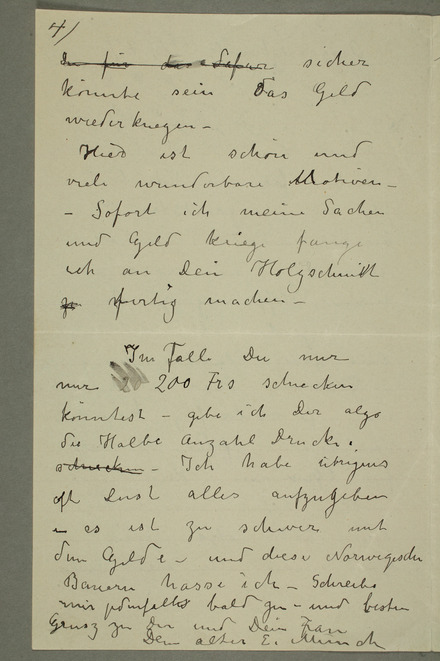 4/
sicher
könnte sein das Geld
wiederkriegen –
Hier ist schön und
viele wunderbare Motiven –
– Sofort ich meine Sachen
und Geld kriege fange
ich an Dein Holzschnitt
fertig machen –
Im Falle Du nur
nur 200 Frs schecken
könntest – gebe ich Dir also
die Halbe Anzahl Drucke
schecken – Ich habe übrigens
oft Lust alles aufzugeben
– es ist zu schwer mit
dem Gelde – und diese Norwegische
Bauern hasse ich – Schreibe
mir jedenfalls bald zu – und besten
Grusz zu Dir und Dein Frau
Dein alter E. Munch